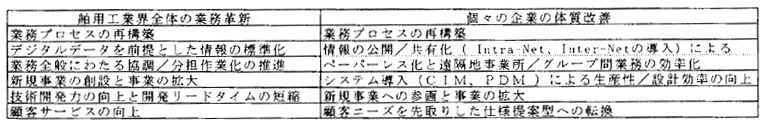 舶用工業界全体の業務革新 個々の企業の体質改善
業務プロセスの再構築 業務プロセスの再構築
デジタルデータを前提とした情報の標準化 情報の公開／共有化（Intra-Net, Inter-Netの導入）による
業務全般にわたる協調／分担作業化の推進 ペーパーレス化と遠隔地事業所／グループ間業務の効率化
新規事業の創設と事業の拡大 システム導入（ＣＩＭ、ＰＤＭ）による生産性／設計効率の向上
技術開発力の向上と開発リードタイムの短縮 新規事業への参画と事業の拡大
顧客サービスの向上 顧客ニーズを先取りした仕様提案型への転換